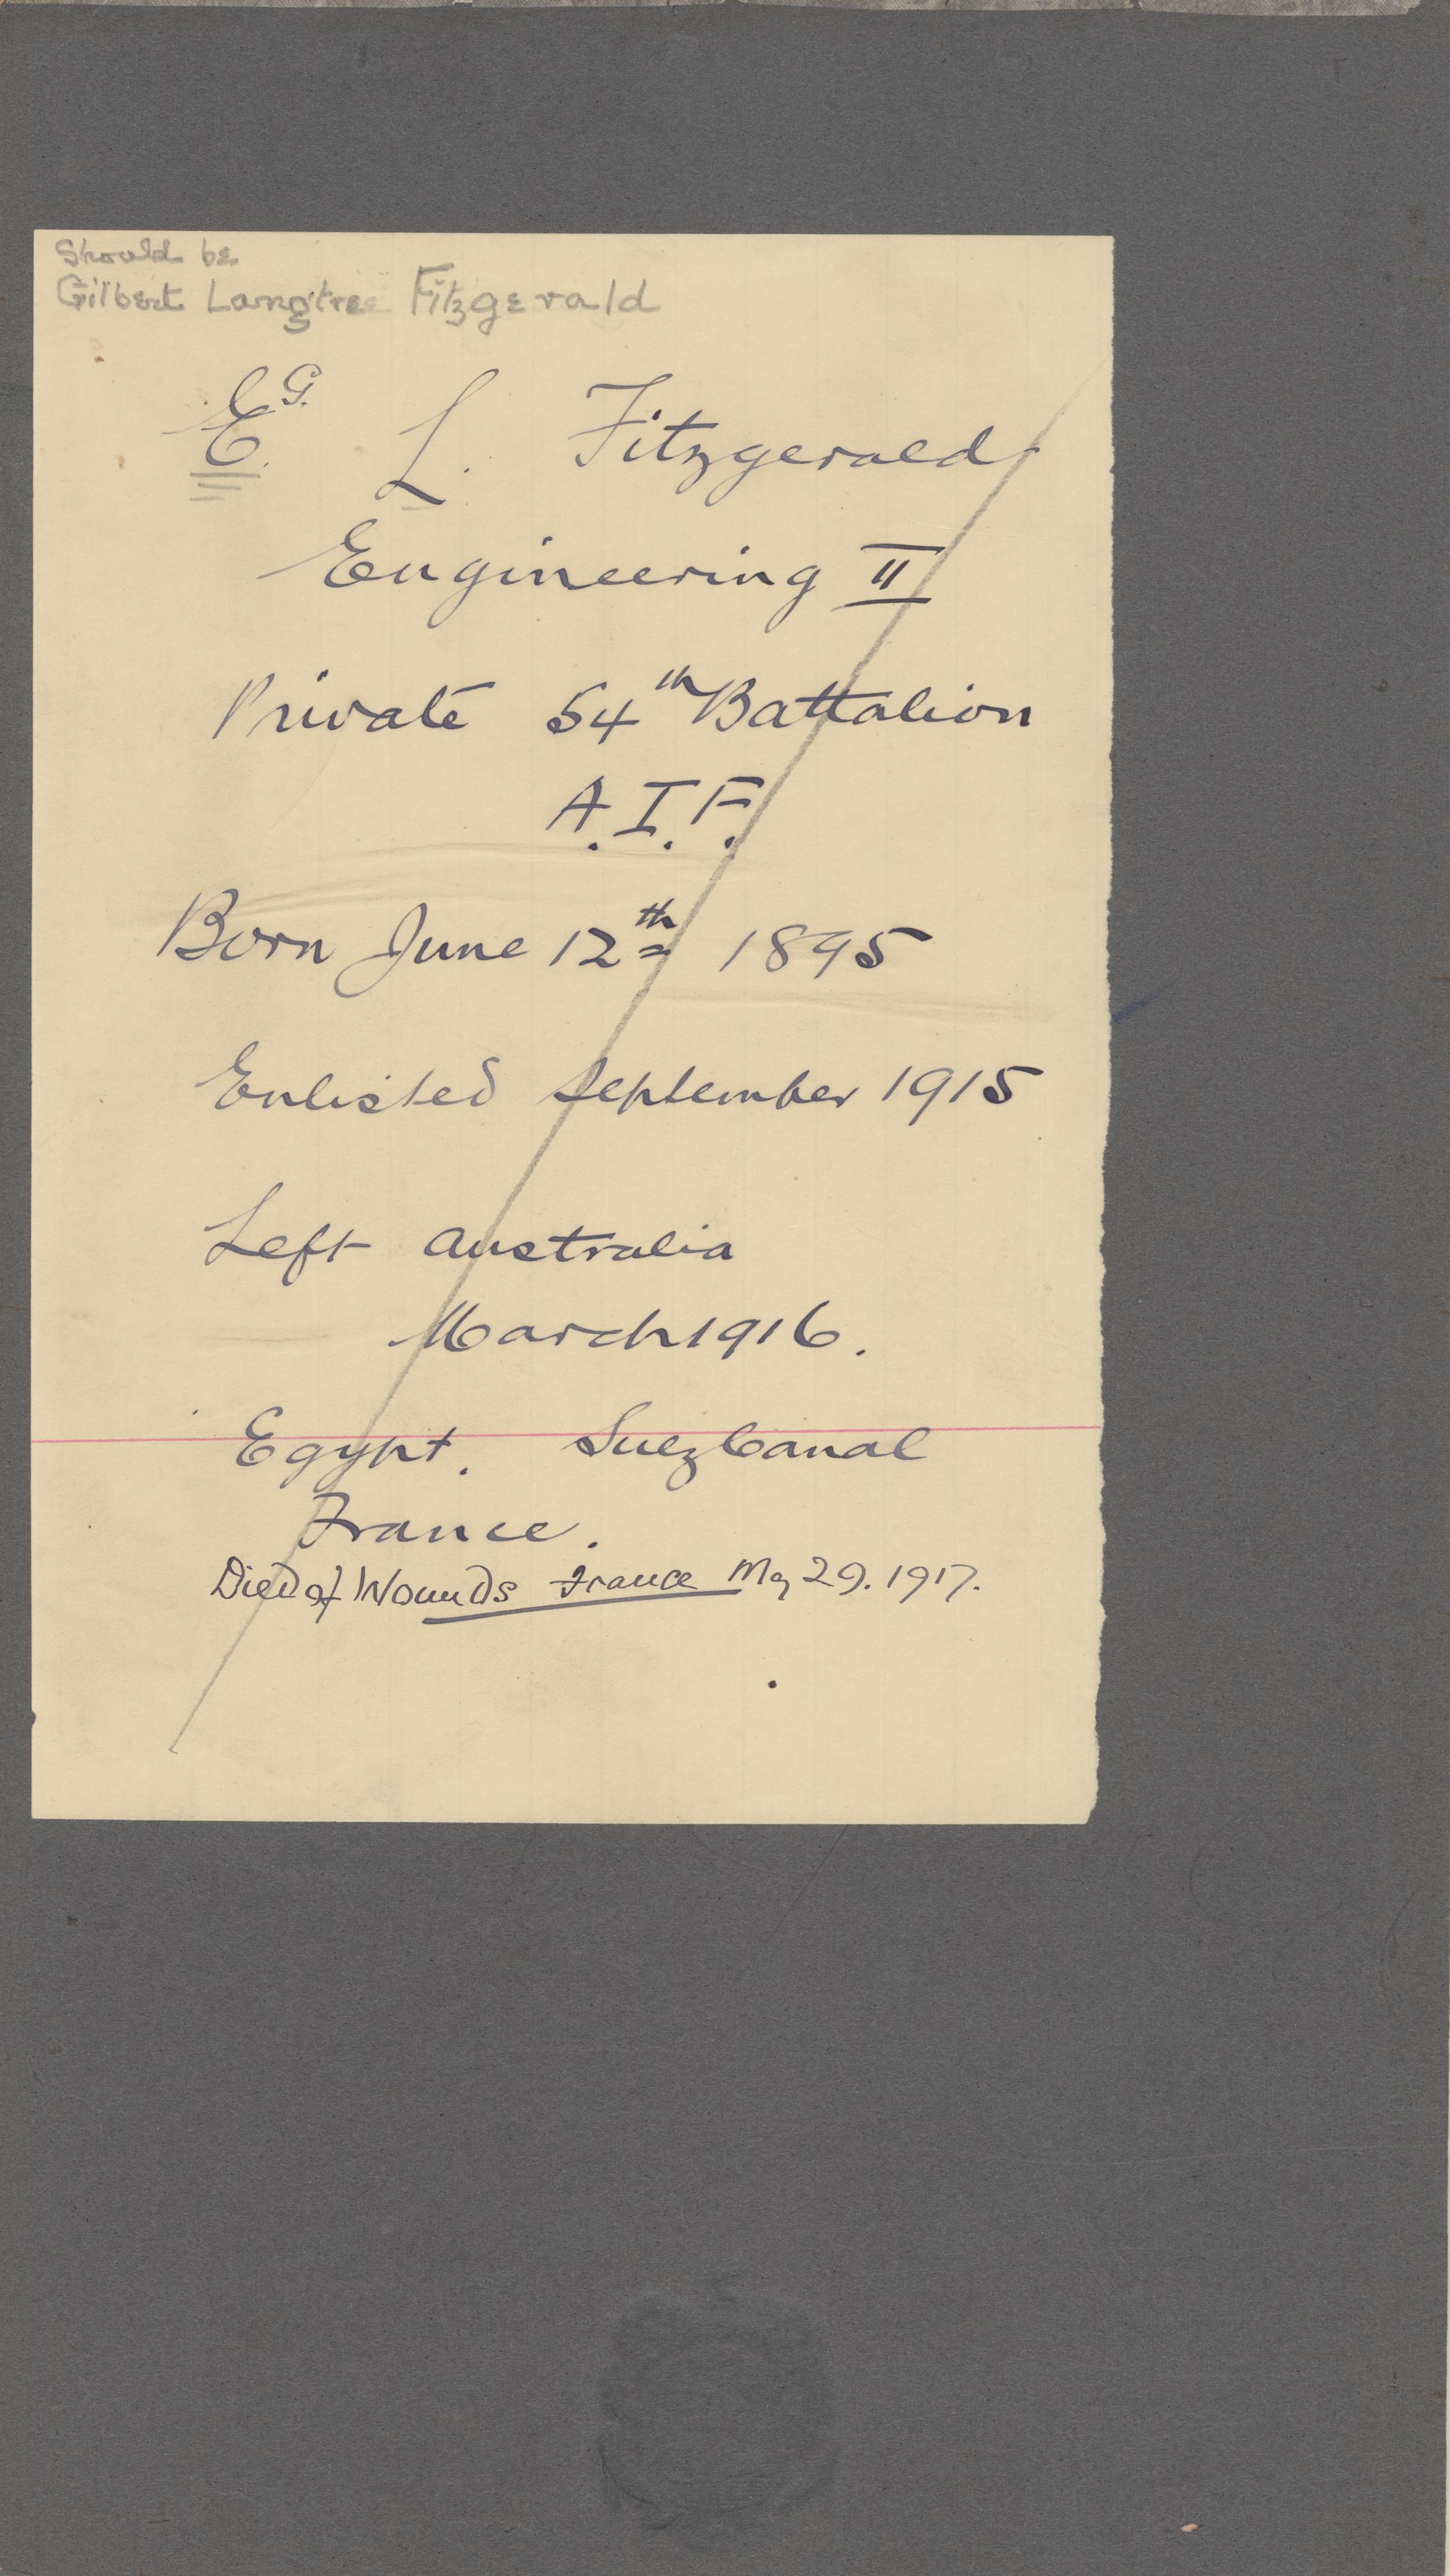 Should be
Gilbert Langtree Fitzgerald
G.
E. L. Fitzgerald
Engineering II
Private 54th Battalion
A.I.F.
Born June 12th 1895
Enlisted September 1915
Left Australia
March 1916.
Egypt. Suez Canal
France.
Died of Wounds France May 29. 1917.